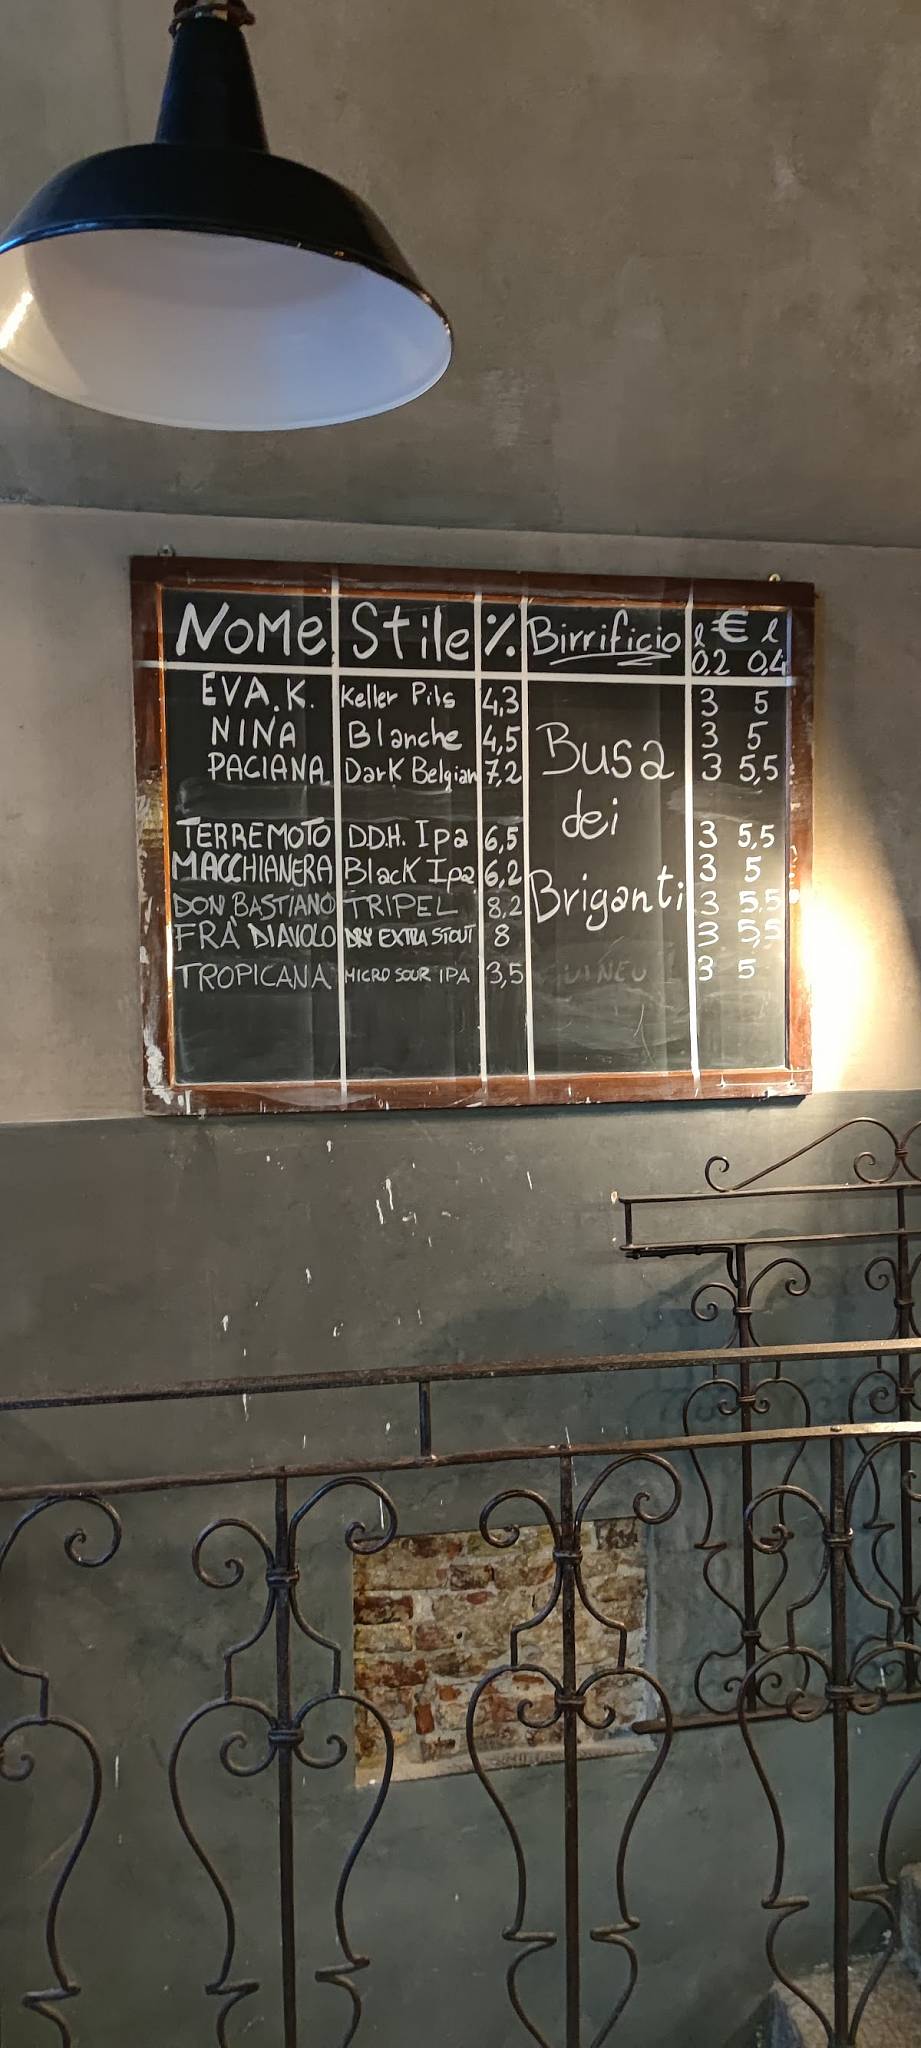 NOME Stile % Birrificio l € l
0,2 0,4
EVA.K. Keller Pils 4,3 3 5
NINA Blanche 4,5 3 5
PACIANA Dark Belgian 7,2 Busa 3 5,5
dei
TERREMOTO D.D.H. Ipa 6,5 3 5,5
MACCHIANERA Black Ipa 6,2 3 5
DON BASTIANO TRIPEL 8,2 Briganti 3 5,5
FRÀ DIAVOLO DRY EXTRA STOUT 8 3 5,5
TROPICANA MICRO SOUR IPA 3,5 3 5